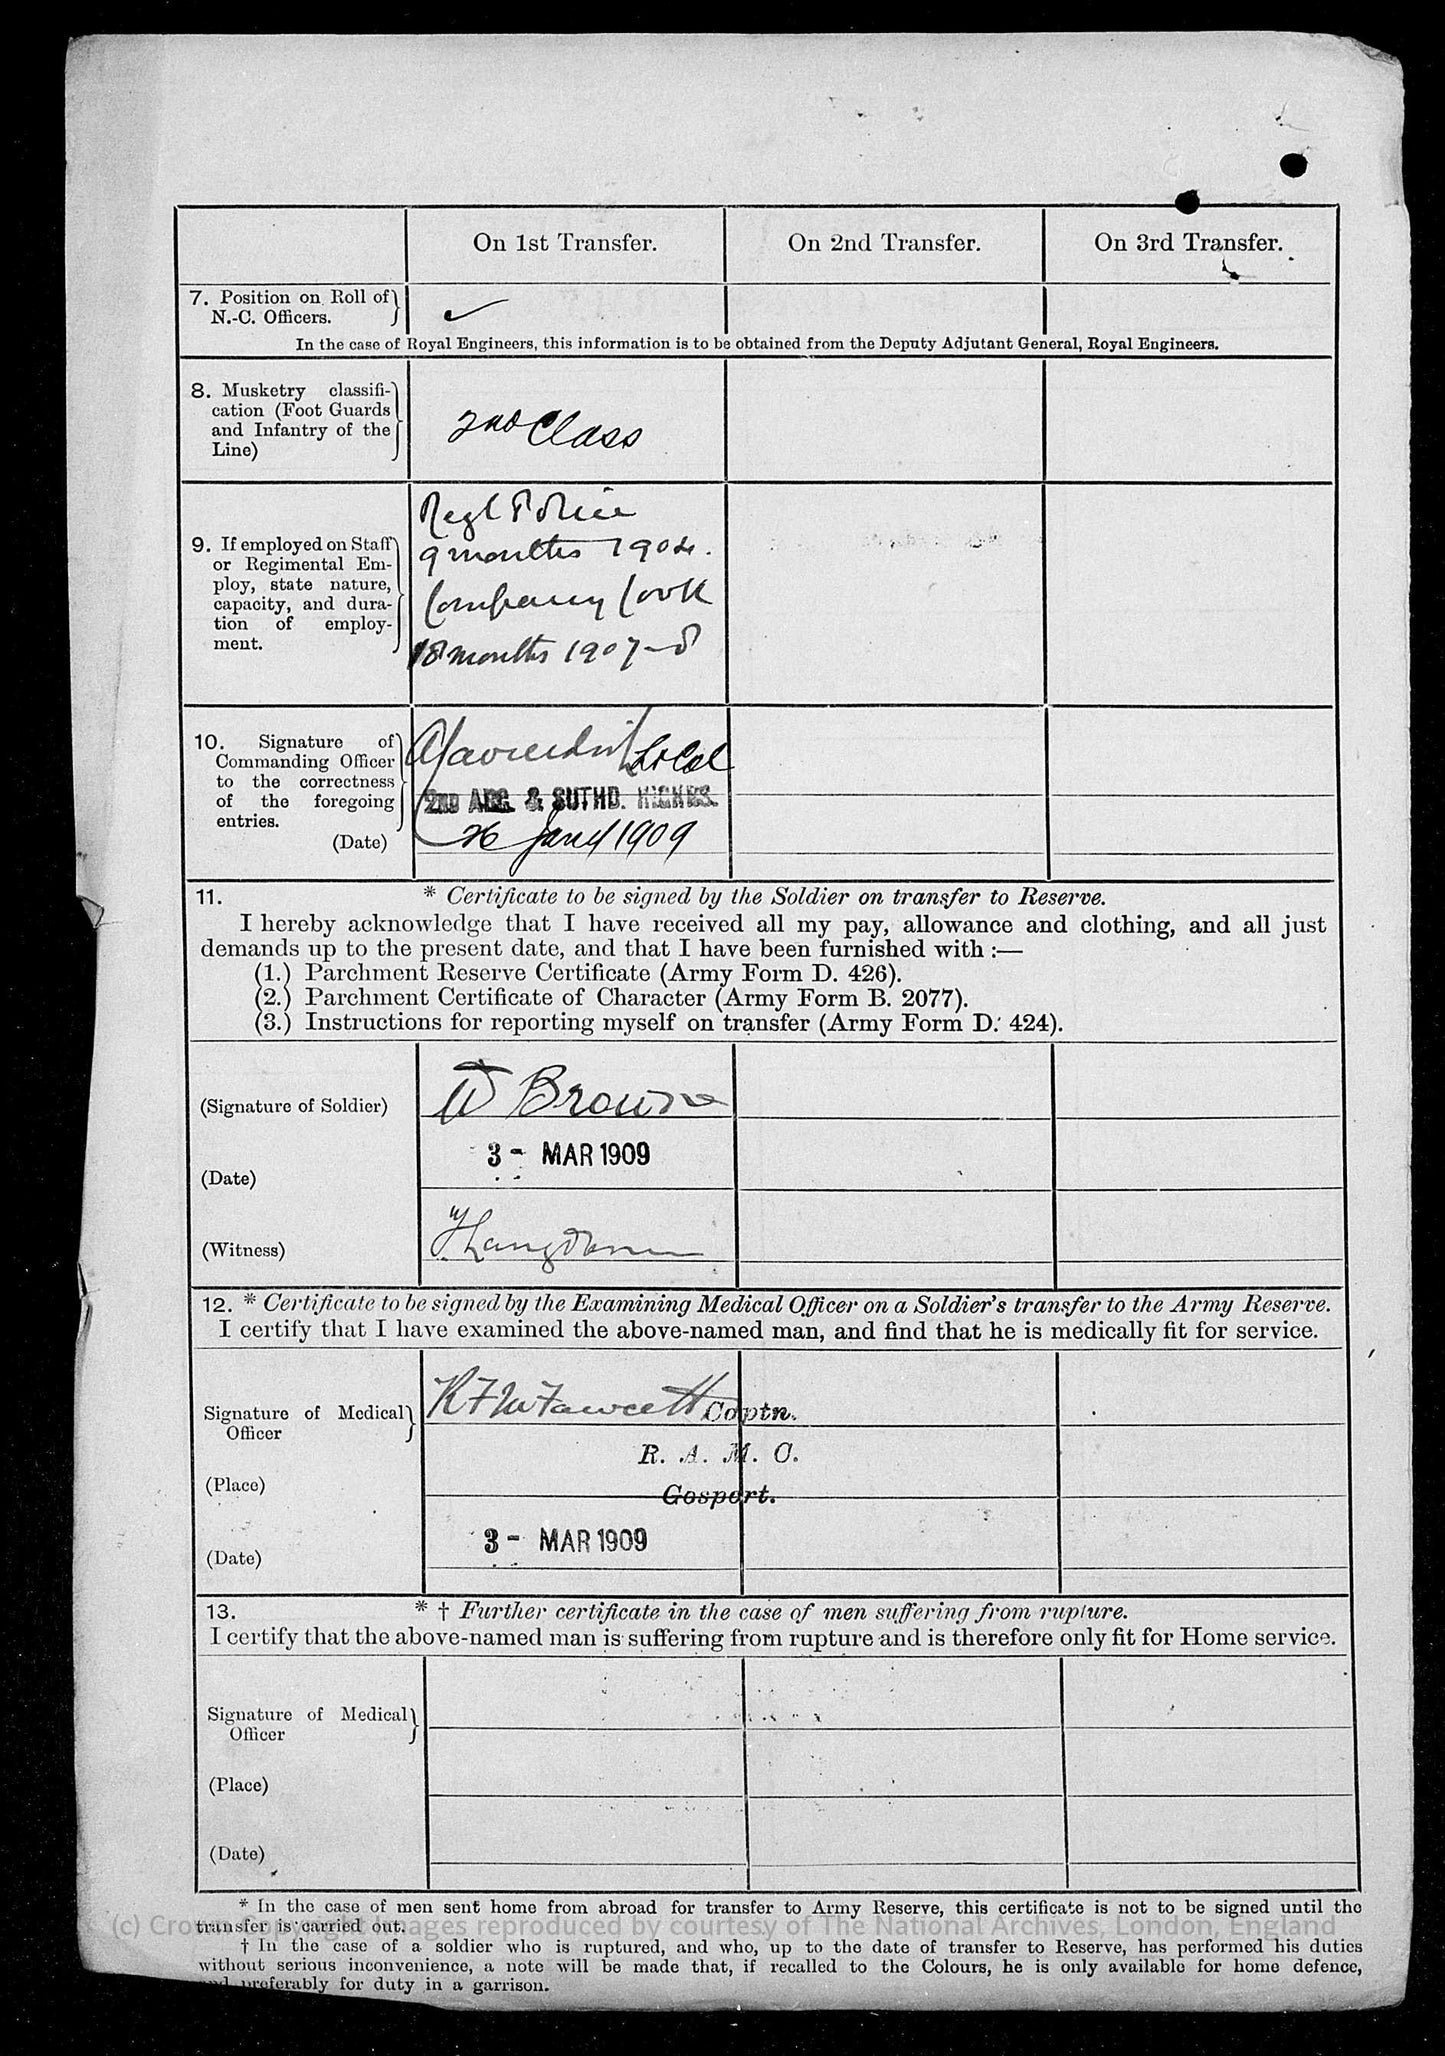 On 1st Transfer. On 2nd Transfer. On 3rd Transfer.
7. Position on Roll of
N.-C. Officers.
In the case of Royal Engineers, this information is to be obtained from the Deputy Adjutant General, Royal Engineers.
8. Musketry classifi-
cation (Foot Guards
and Infantry of the
Line)
2nd Class
9. If employed on Staff
or Regimental Em-
ploy, state nature,
capacity, and dura-
tion of employ-
ment.
Regl Police
9 months 1904.
Company Cook
18 months 1907-8
10. Signature of
Commanding Officer
to the correctness
of the foregoing
entries.
(Date)
Lt Col
2ND ARG. & SUTHD. HIGHRS.
26 Jany 1909
11. * Certificate to be signed by the Soldier on transfer to Reserve.
I hereby acknowledge that I have received all my pay, allowance and clothing, and all just
demands up to the present date, and that I have been furnished with :—
(1.) Parchment Reserve Certificate (Army Form D. 426).
(2.) Parchment Certificate of Character (Army Form B. 2077).
(3.) Instructions for reporting myself on transfer (Army Form D. 424).
(Signature of Soldier) W Browne
(Date) 3 - MAR 1909
(Witness)
12. * Certificate to be signed by the Examining Medical Officer on a Soldier's transfer to the Army Reserve.
I certify that I have examined the above-named man, and find that he is medically fit for service.
Signature of Medical
Officer
Fawcett Captn.
R. A. M. C.
(Place) Gosport.
(Date) 3 - MAR 1909
13. * † Further certificate in the case of men suffering from rupture.
I certify that the above-named man is suffering from rupture and is therefore only fit for Home service.
Signature of Medical
Officer
(Place)
(Date)
* In the case of men sent home from abroad for transfer to Army Reserve, this certificate is not to be signed until the
transfer is carried out.
(c) Crown copyright images reproduced by courtesy of The National Archives, London, England
† In the case of a soldier who is ruptured, and who, up to the date of transfer to Reserve, has performed his duties
without serious inconvenience, a note will be made that, if recalled to the Colours, he is only available for home defence,
and preferably for duty in a garrison.